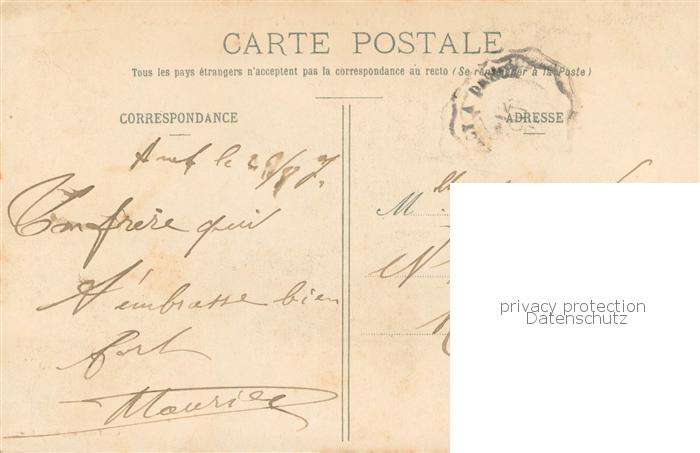 CARTE POSTALE
Tous les pays étrangers n'acceptent pas la correspondance au recto (Se renseigner à la Poste)
CORRESPONDANCE
ADRESSE
le
M
Ton frère qui
t'embrasse bien
fort
Maurice
privacy protection
Datenschutz